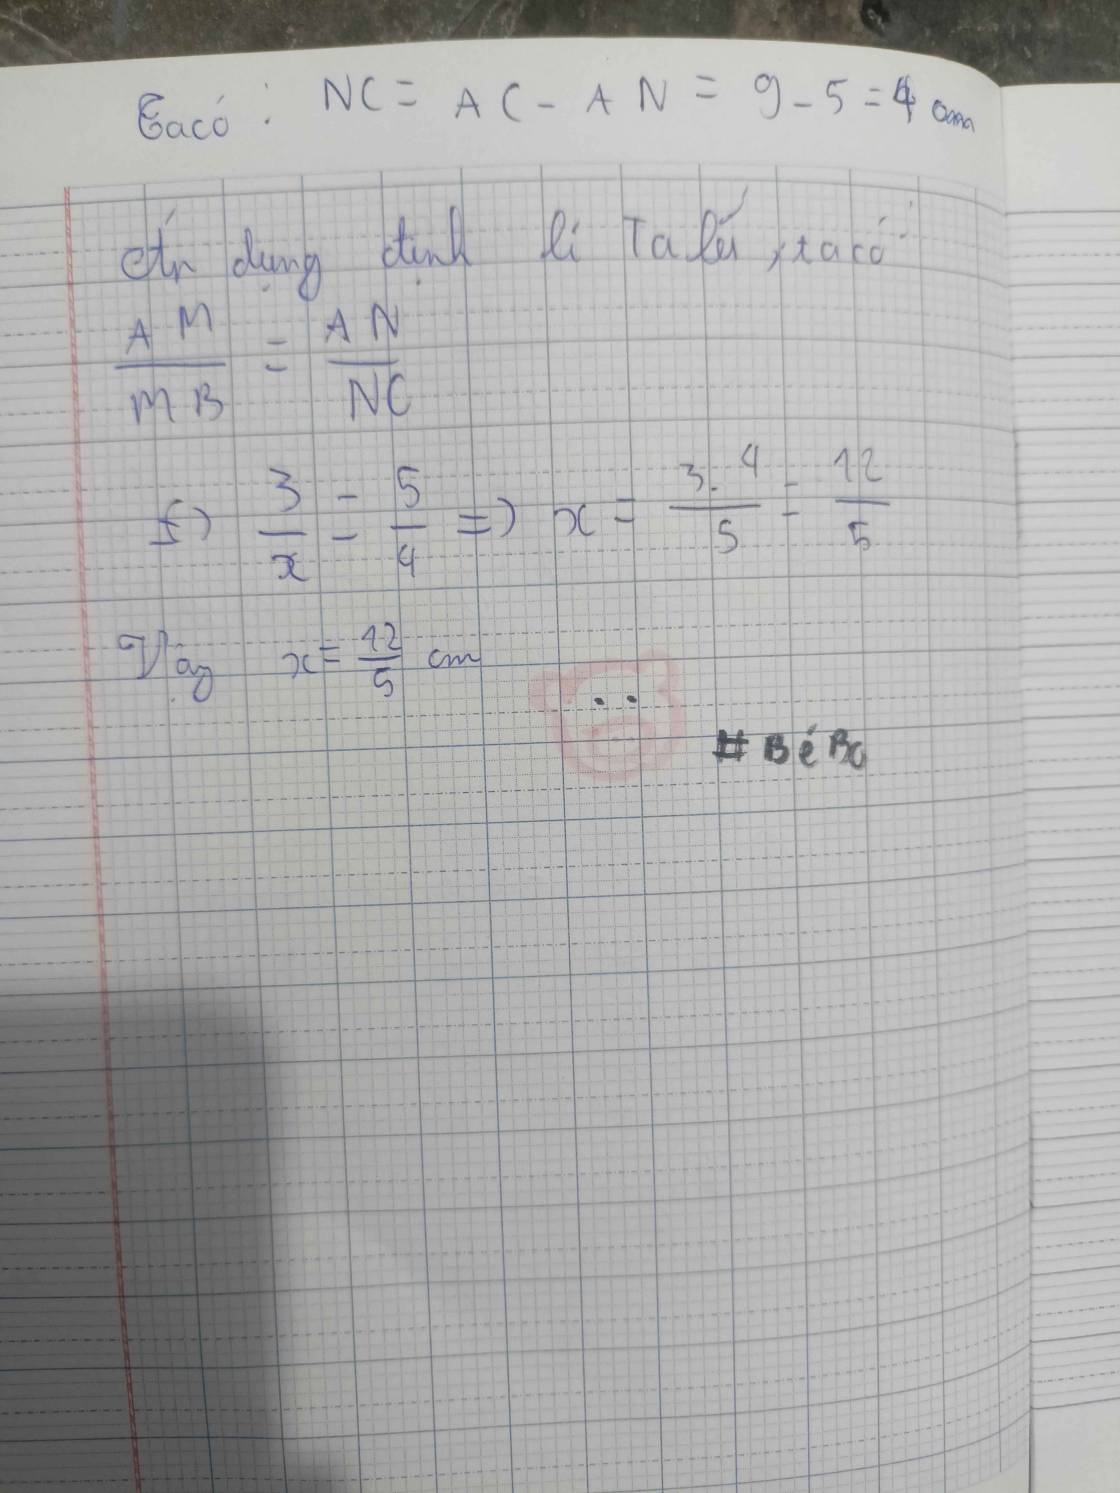 Tacó: NC = AC - AN = 9 - 5 = 4 cm
Áp dụng định lí Talét, tacó:
AM/MB = AN/NC
=> 3/x = 5/4 => x = 3.4/5 = 12/5
Vậy x = 12/5 cm
# Bé Bo